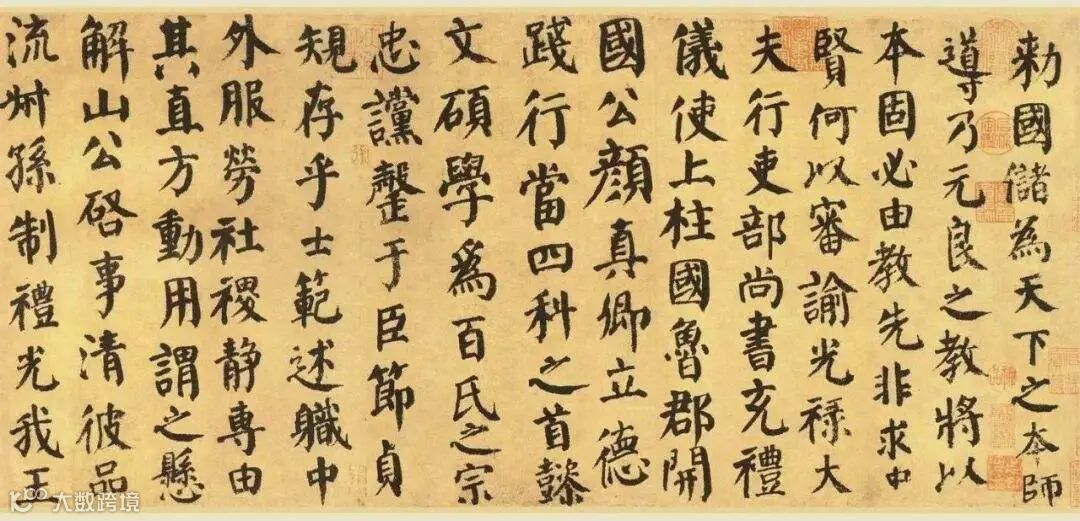 勑國儲為天下之本師
導乃元良之教將以
本固必由教先非求中
賢何以審諭光祿大
夫行吏部尚書充禮
儀使上柱國魯郡開
國公顏真卿立德
踐行當四科之首懿
文碩學爲百氏之宗
忠讜罄于臣節貞
規存乎士範述職中
外服勞社稷静專由
其直方動用謂之懸
解山公啓事清彼品
流叔孫制禮光我王
大数跨境